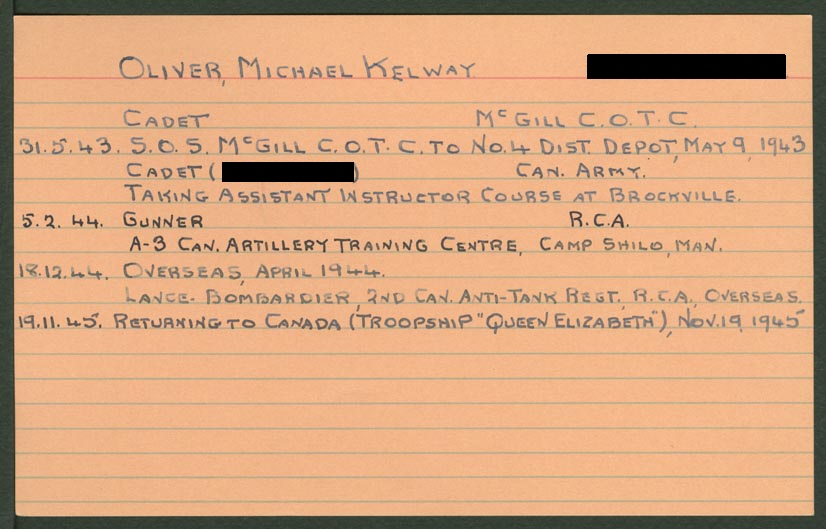 OLIVER, MICHAEL KELWAY
CADET McGILL C.O.T.C.
31.5.43. S.O.S. McGILL C.O.T.C. TO No.4 DIST. DEPOT, MAY 9, 1943
CADET ( ) CAN. ARMY.
TAKING ASSISTANT INSTRUCTOR COURSE AT BROCKVILLE.
5.2.44. GUNNER R.C.A.
A-3 CAN. ARTILLERY TRAINING CENTRE, CAMP SHILO, MAN.
18.12.44. OVERSEAS, APRIL 1944.
LANCE-BOMBARDIER, 2ND CAN. ANTI-TANK REGT., R.C.A., OVERSEAS.
19.11.45. RETURNING TO CANADA (TROOPSHIP "QUEEN ELIZABETH"), NOV.19, 1945